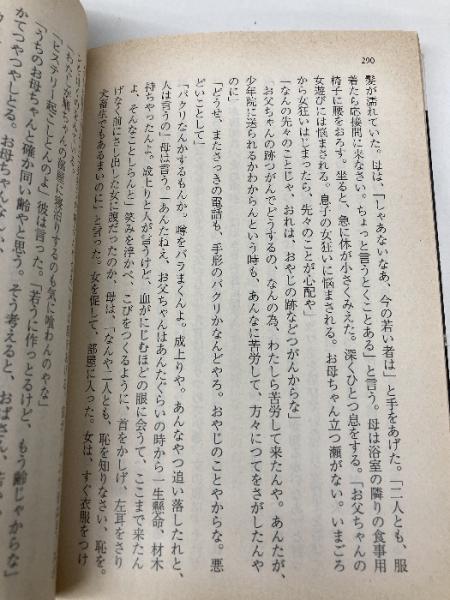 290
髪が濡れていた。母は、「しゃあないなあ、今の若い者は」と手をあげた。「二人とも、服
着たら応接間に来なさい。ちょっと言うとくことある」と言う。母は浴室の隣りの食事用
椅子に腰をおろす。坐ると、急に体が小さくみえた。深くひとつ息をする。「お父ちゃんの
女遊びには悩まされる。息子の女狂いに悩まされる。お母ちゃん立つ瀬がない。いまごろ
から女狂いはじまったら、先々のことが心配や」
「なんの先々のことじゃ、おれは、おやじの跡などつがんからな」
「お父ちゃんの跡つがんでどうするの、なんの為、わたしら苦労して来たんや。あんたが、
少年院に送られるかわからんという時も、あんなに苦労して、方々につてをさがしたんや
のに」
「どうせ、またさっきの電話も、手形のパクリかなんどやろ。おやじのことやからな。悪
どいことして」
「パクリなんかするもんか。噂をバラまくんよ。成上りや。あんなやつ追い落したれと、
人は言うの」母は言う。「あんたねえ、お父ちゃんはあんたぐらいの時から一生懸命、材木
持ちやったんよ。成上りと人が言うけど、血がにじむほどの眼に会うて、ここまで来たん
よ、そんなことしらんと」笑みを浮かべ、こびをつくるように、首をかしげ、左耳をさり
げなく前にさし出した女に腹だったのか、母は、「なんや二人とも、恥を知りなさい、恥を。
犬畜生でもあるまいのに」と言った。女を促して、部屋に入った。女は、すぐ衣服をつけ
「ヒステリー起こしとんのよ」彼は言った。「若うに作っとるけど、もう齢じゃからな」
「うちのお母ちゃんと確か同い齢やと思う。そう考えると、おばさん、若い
かてつやつやしとる。お母ちゃんなんか、